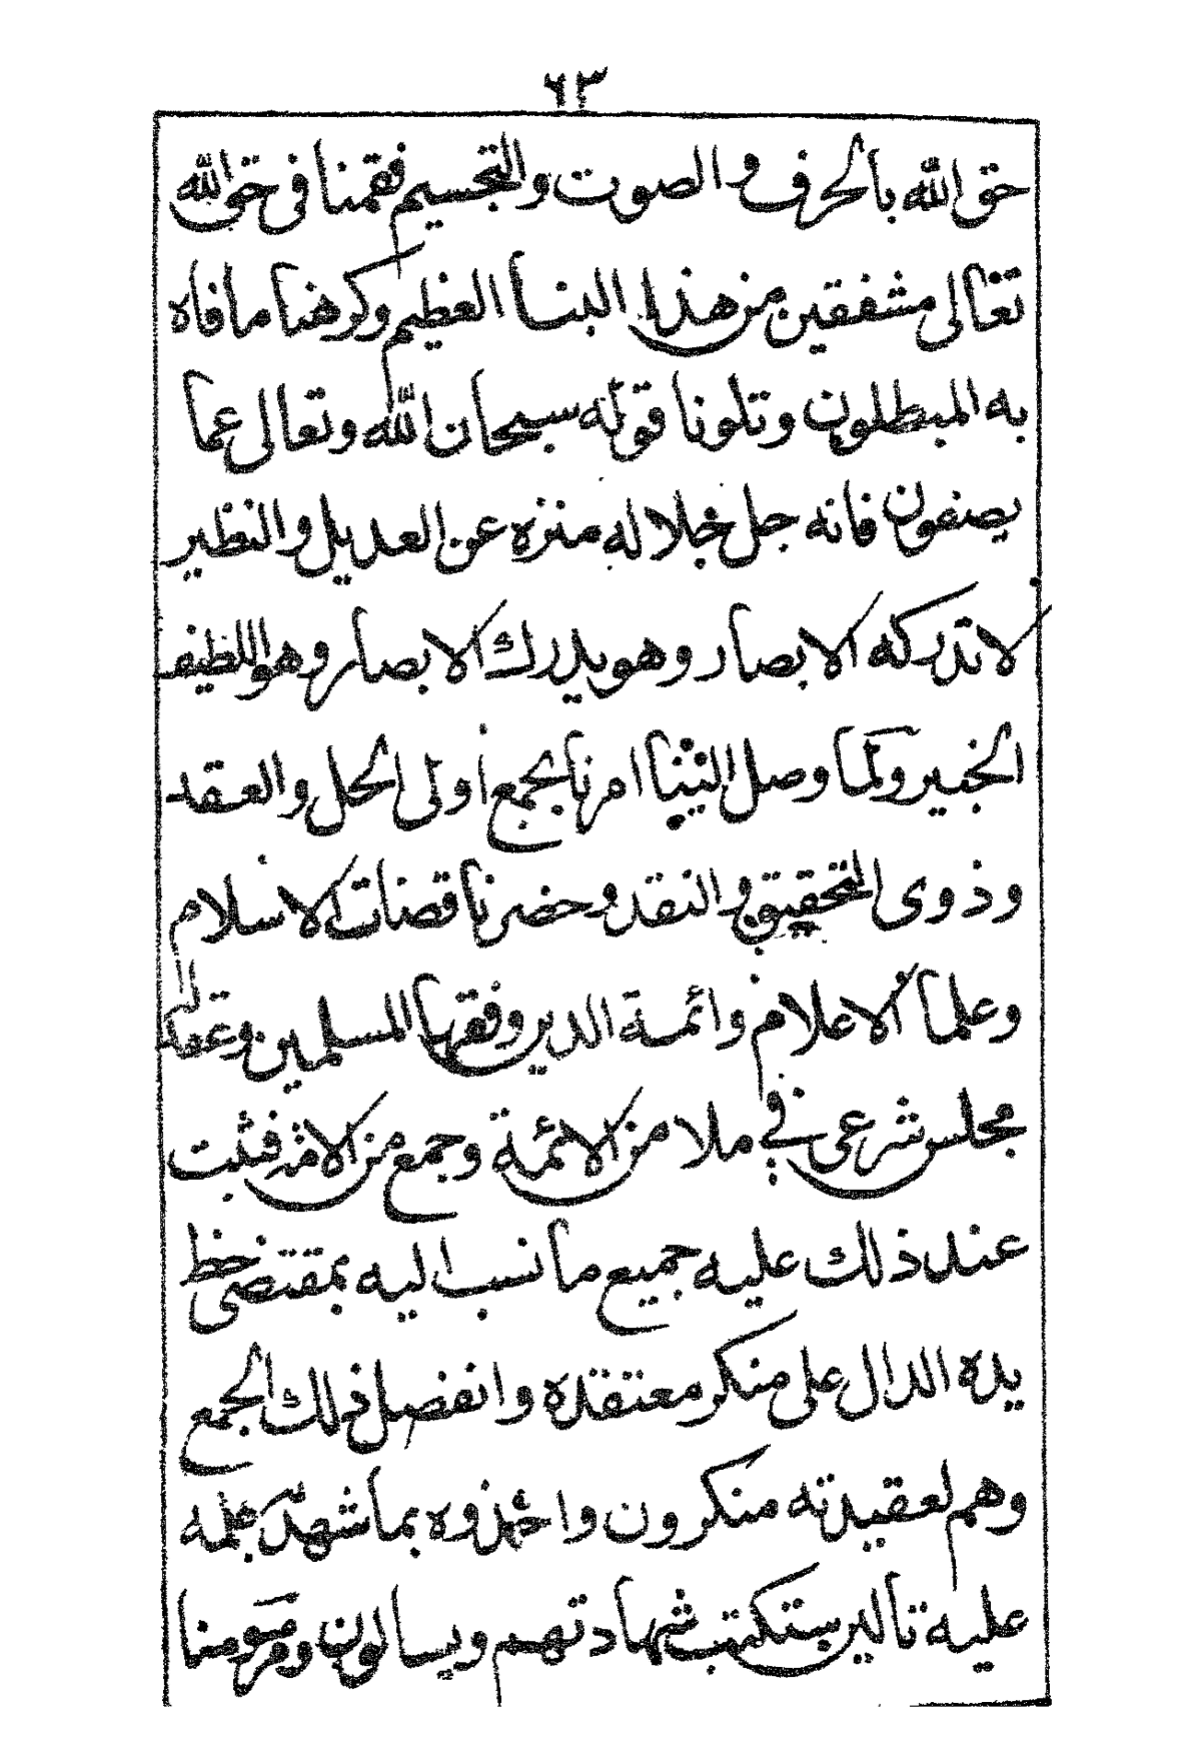 ٦٣
حق الله بالحرف والصوت والتجسيم فقمنا فى حق الله
تعالى مشفقين من هذا البنأ العظيم وكرهنا ما فاه
به المبطلون وتلونا قوله سبحان الله وتعالى عما
يصفون فانه جل جلاله منزه عن العديل والنظير
لا تدركه الابصار وهو يدرك الابصار وهو اللطيف
الخبير ولما وصل الينا امرنا بجمع أولى الحل والعقد
وذوى التحقيق والنقد وحضرنا قضات الاسلام
وعلما الاعلام وائمة الدين وفقها المسلمين وعقد له
مجلس شرعى في ملا من الائمة وجمع من الامة فثبت
عند ذلك عليه جميع ما نسب اليه بمقتضى خط
يده الدال على منكر معتقده وانفصل ذلك الجمع
وهم لعقيدته منكرون واخذوه بما شهد علمه
عليه تالين ستكتب شهادتهم ويسالون ومرسومنا